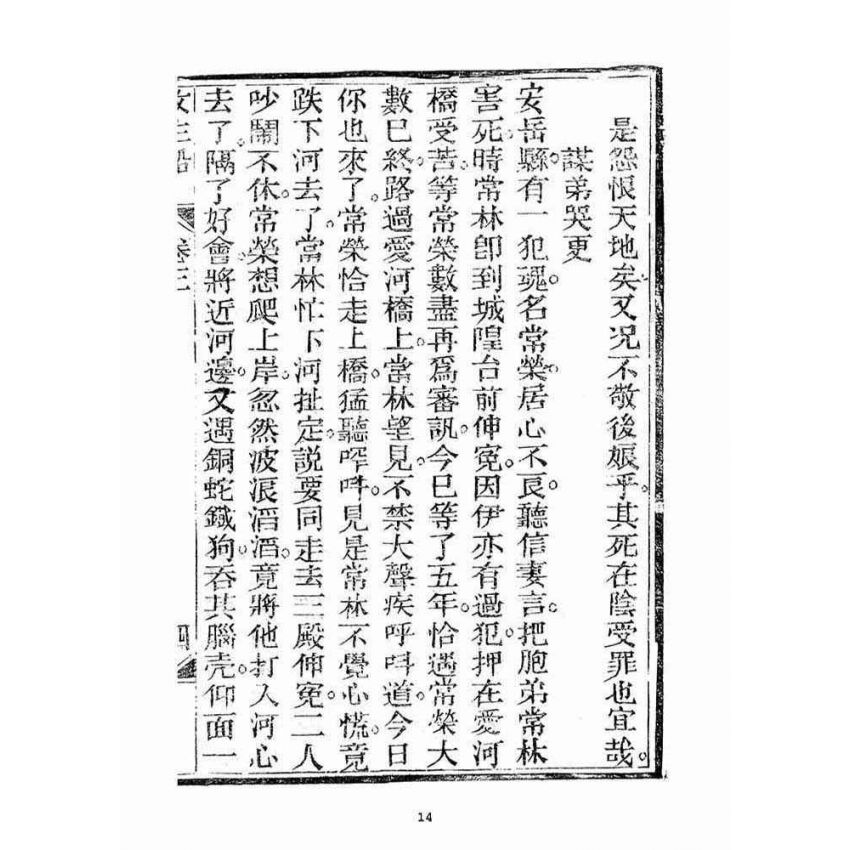 是怨恨天地矣又况不敬後娘乎其死在陰受罪也宜哉
謀弟哭更
安岳縣有一犯魂名常榮居心不良聽信妻言把胞弟常林
害死時常林卽到城隍台前伸冤因伊亦有過犯押在愛河
橋受苦等常榮數盡再爲審訊今已等了五年恰遇常榮大
數已終路過愛河橋上當林望見不禁大聲疾呼呌道今日
你也來了常榮恰走上橋猛聽呌見是常林不覺心慌竟
跌下河去了當林忙下河扯定説要同走去三殿伸冤二人
吵鬧不休常榮想爬上岸忽然波浪滔滔竟將他打入河心
去了隔了好會將近河邊又遇銅蛇鐵狗吞其腦壳仰面一
卷三
四
14